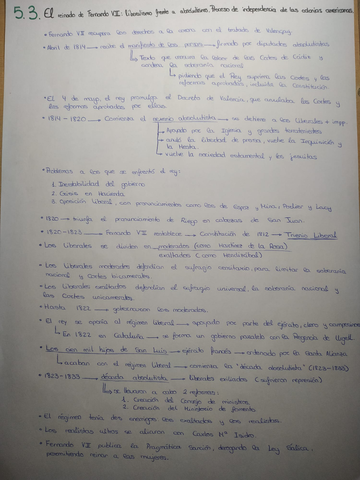 5.3. El reinado de Fernando VII: Liberalismo frente a absolutismo. Proceso de independencia de las colonias americanas.
• Fernando VII recupera sus derechos a la corona con el tratado de Valençay
• Abril de 1814 → recibe el manifiesto de los persas → firmado por diputados absolutistas
↳ Texto que
la labor de las Cortes de Cádiz y
la soberanía nacional
↳ pidiendo que el Rey suprima las Cortes y las
reformas aprobadas, incluida la Constitución
• El 4 de mayo, el rey promulga el Decreto de Valencia, que anulaba las Cortes y
las reformas aprobadas por ellas.
• 1814 - 1820 → Comienza el sexenio absolutista → se detiene a los liberales
↳ Apoyado por la Iglesia y grandes terratenientes
↳ anuló la libertad de prensa, vuelve la Inquisición y
la Mesta.
↳ vuelve la sociedad estamental, los jesuitas
• Problemas a los que se enfrentó el rey:
1. Inestabilidad del gobierno
2. Crisis en Hacienda
3. Oposición liberal, con pronunciamientos como los de Espoz y Mina, Porlier y Lacy
• 1820 → triunfa el pronunciamiento de Riego en cabezas de San Juan.
• 1820 - 1823 → Fernando VII restablece → Constitución de 1812 → Trienio Liberal
• Los liberales se dividen en → moderados (como Martínez de la Rosa)
exaltados (como Mendizábal)
• Los liberales moderados defendían el sufragio censitario para limitar la soberanía
nacional y Cortes bicamerales.
• Los liberales exaltados defendían el sufragio universal, la soberanía nacional y
las Cortes unicamerales.
• Hasta 1822 → gobernaron los moderados.
• El rey se oponía al régimen liberal → apoyado por parte del ejército, clero y campesinos
↳ En 1822 en Cataluña → se forma un gobierno paralelo con la Regencia de Urgell.
• Los cien mil hijos de San Luis → ejército francés → ordenado por la Santa Alianza
↳ acaban con el régimen liberal → comienza la "década absolutista" (1823-1833)
• 1823 - 1833 → década absolutista → liberales exiliados (sufrieron represión)
↳ Se llevaron a cabo 2 reformas:
1. Creación del Consejo de ministros
2. Creación del Ministerio de fomento
• El régimen tenía dos enemigos: los exaltados y los realistas.
• Los realistas ultras se aliaron con Carlos Mª Isidro.
• Fernando VII publica la Pragmática Sanción, derogando la Ley Sálica,
permitiendo reinar a las mujeres.